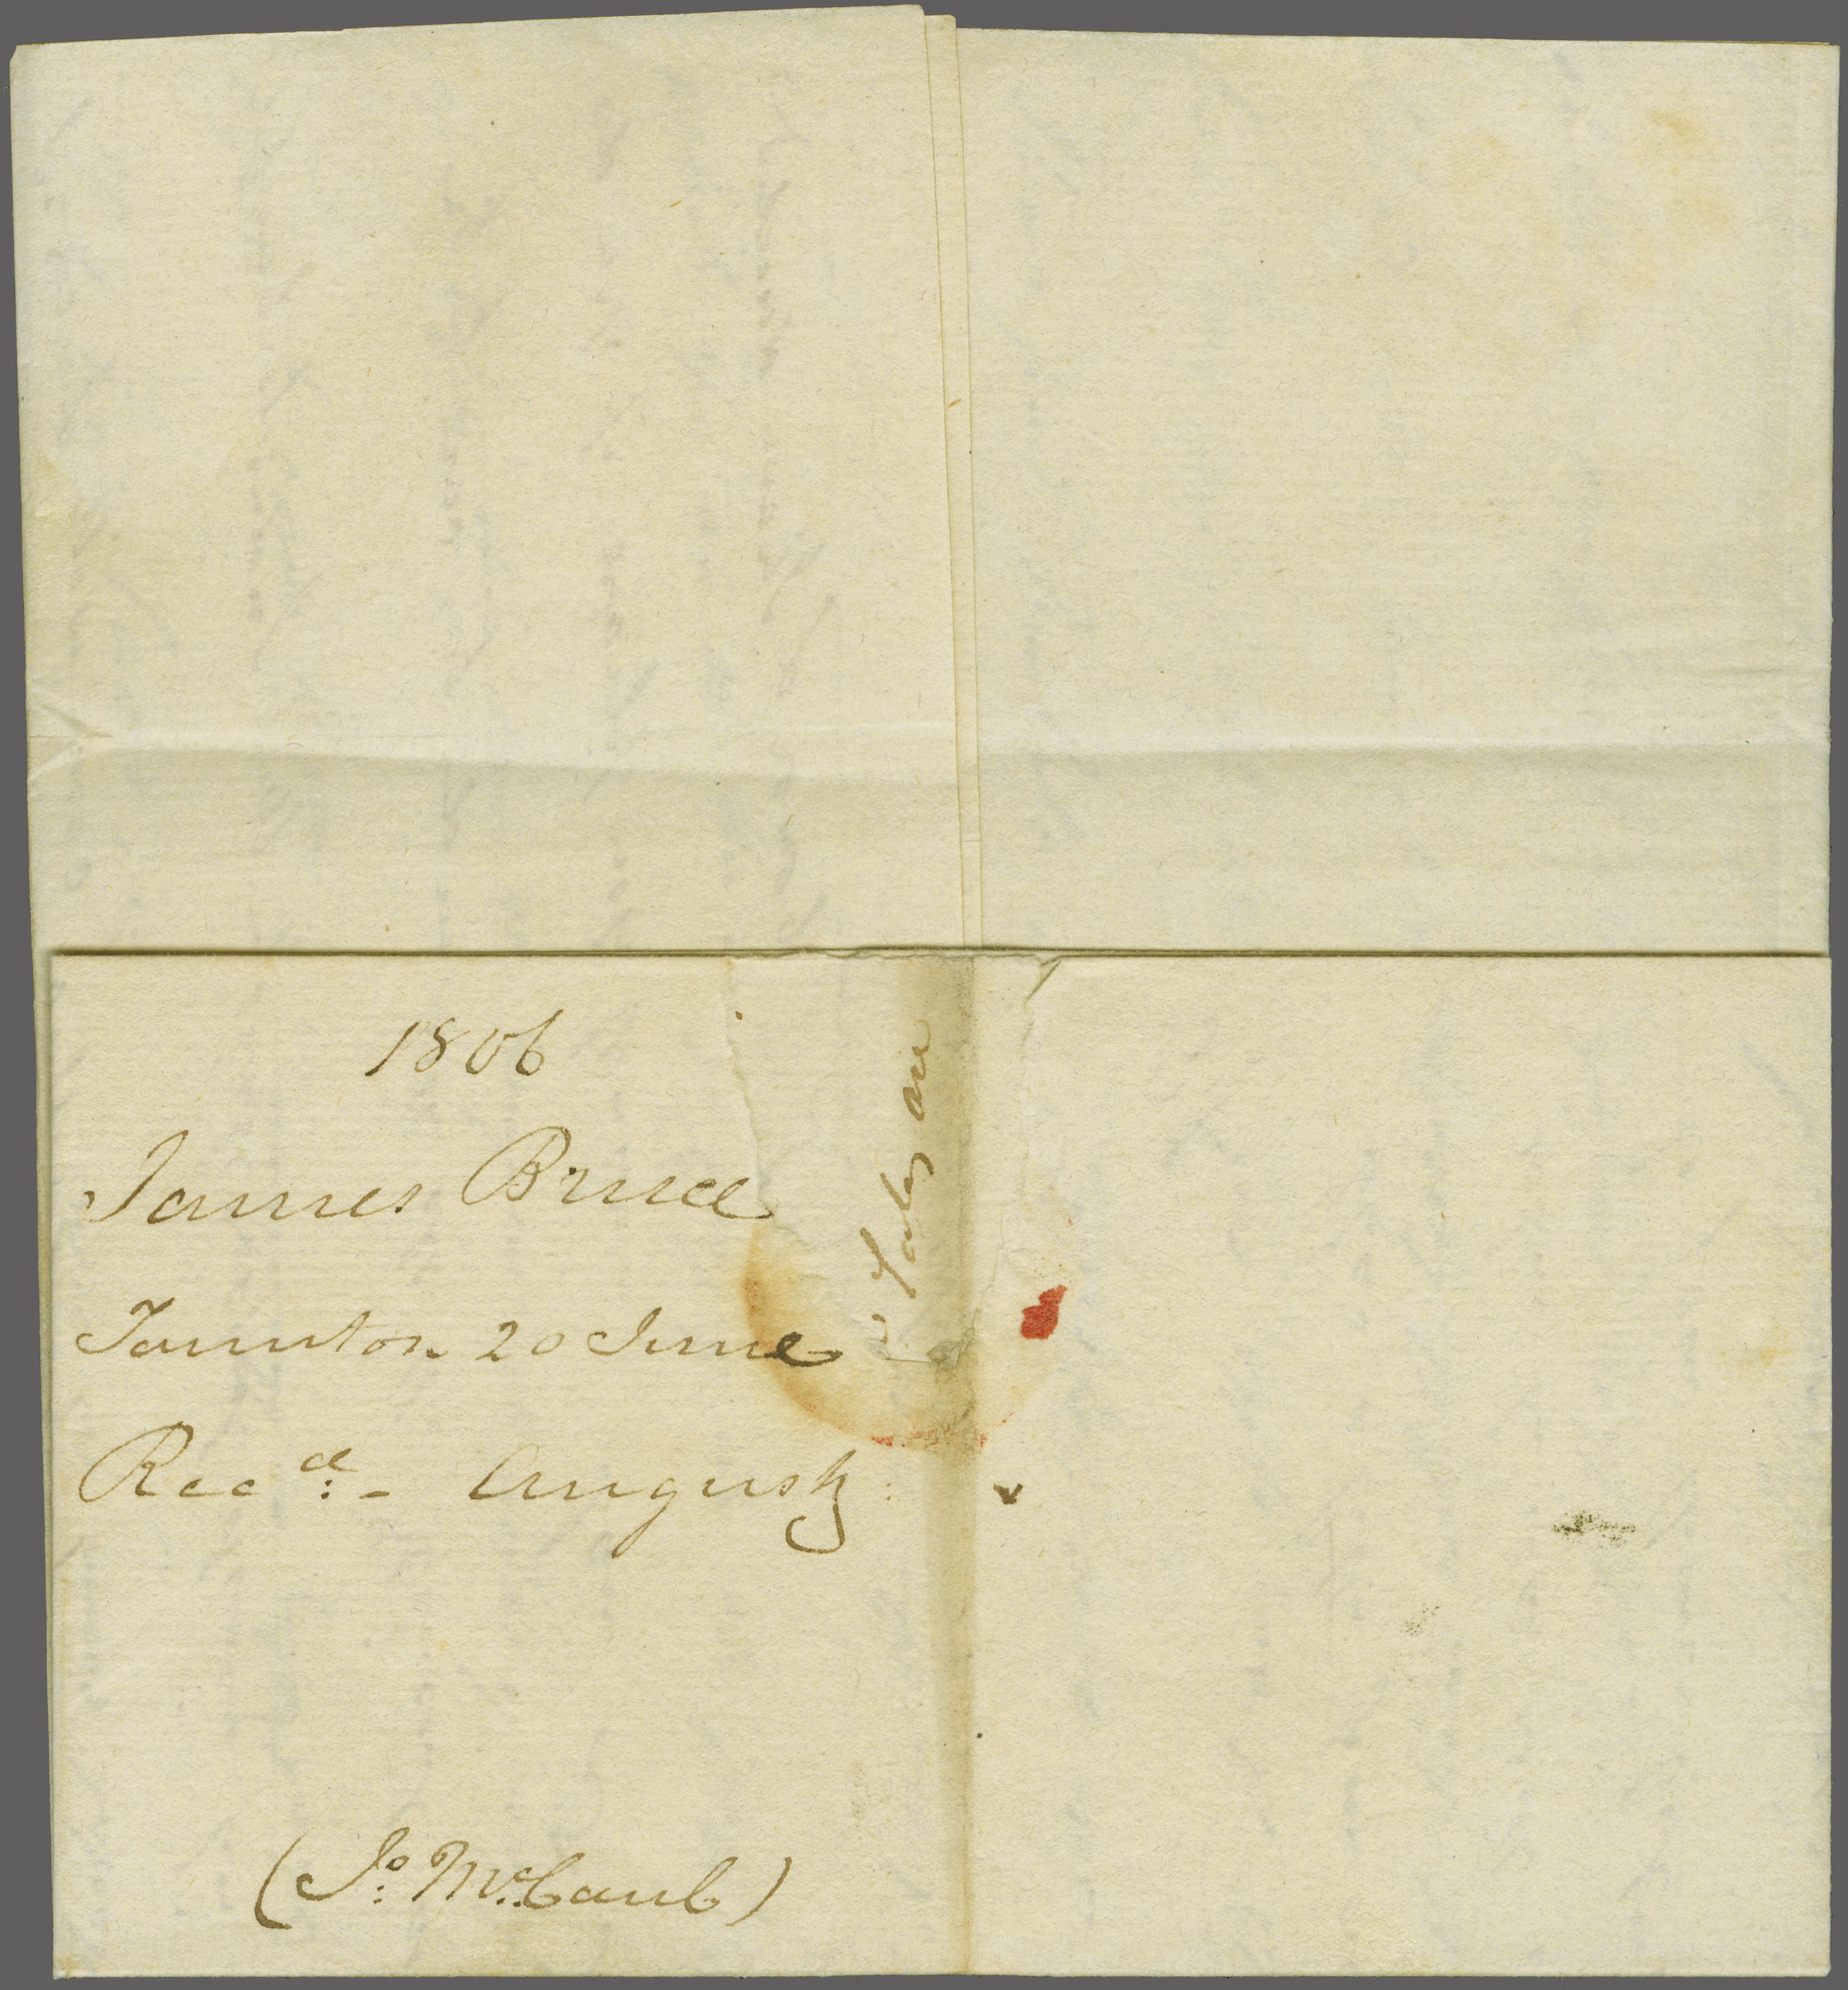 1806
James Bruce
Taunton 20 June
Recd:- August
(Jo: McCaul)